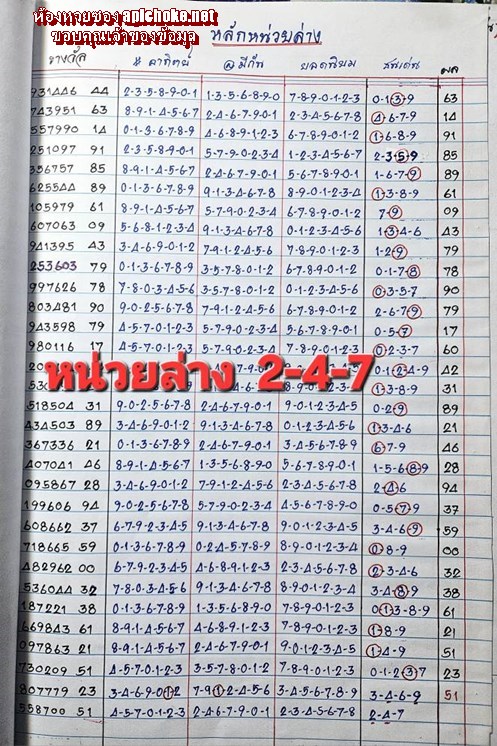 ห้องหวยซอง aplchoke.net
ขอบคุณเจ้าของข้อมูล
หลักหน่วยล่าง
# อาทิตย์ @ มีกัน ผล
931446 44 2-3-5-8-9-0-1 1-3-5-6-8-9-0 7-8-9-0-1-2-3 0-1-3-9 63
743951 63 8-9-1-4-5-6-7 2-4-6-7-9-0-1 2-3-4-5-6-7-8 4-6-7-9 14
557990 14 0-1-3-6-7-8-9 4-6-8-9-1-2-3 6-7-8-9-0-1-2 1-6-8-9 91
251097 91 2-3-5-8-9-0-1 5-7-9-0-2-3-4 1-2-3-4-5-6-7 2-3-5-9 85
85 8-9-1-4-5-6-7 2-4-6-7-9-0-1 5-6-7-8-9-0-1 1-6-7-9 89
625544 89 0-1-3-6-7-8-9 9-1-3-4-6-7-8 8-9-0-1-2-3-4 1-3-8-9 61
105979 61 8-9-1-4-5-6-7 5-7-9-0-2-3-4 6-7-8-9-0-1-2 7-9 09
607063 09 5-6-8-1-2-3-4 9-1-3-4-6-7-8 0-1-2-3-4-5-6 1-3-4-6 43
941395 43 3-4-6-9-0-1-2 7-9-1-2-4-5-6 7-8-9-0-1-2-3 1-2-9 79
253603 79 0-1-3-6-7-8-9 3-5-7-8-0-1-2 6-7-8-9-0-1-2 0-1-7-8 78
997626 78 7-8-0-3-4-5-6 3-5-7-8-0-1-2 0-1-2-3-4-5-6 0-3-5-7 90
803481 90 9-0-2-5-6-7-8 7-9-1-2-4-5-6 6-7-8-9-0-1-2 2-6-7-9 79
943598 79 4-5-7-0-1-2-3 5-7-9-0-2-3-4 5-6-7-8-9-0-1 0-5-7 17
980116 17 4-5-7-0-1-2-3 5-7-9-0-2-3-4 0-2-3-7 60
หน่วยล่าง 2-4-7
0-1-2-4-9 42
1-3-8-9 31
518504 31 9-0-2-5-6-7-8 2-4-6-7-9-0-1 9-0-1-2-3-4-5 0-2-9 89
434503 89 3-4-6-9-0-1-2 9-1-3-4-6-7-8 0-1-2-3-4-5-6 1-3-4-6 21
367336 21 0-1-3-6-7-8-9 2-4-6-7-9-0-1 3-4-5-6-7-8-9 6-7-9 46
407041 46 8-9-1-4-5-6-7 1-3-5-6-8-9-0 5-6-7-8-9-0-1 1-5-6-8-9 28
095867 28 3-4-6-9-0-1-2 7-9-1-2-4-5-6 2-3-4-5-6-7-8 2-4-6 94
199606 94 9-0-2-5-6-7-8 5-7-9-0-2-3-4 4-5-6-7-8-9-0 0-5-7-9 37
608662 37 6-7-9-2-3-4-5 9-1-3-4-6-7-8 9-0-1-2-3-4-5 3-4-6-9 59
718665 59 0-1-3-6-7-8-9 0-2-4-5-7-8-9 8-9-0-1-2-3-4 0-8-9 00
482962 00 6-7-9-2-3-4-5 4-6-8-9-1-2-3 2-3-4-5-6-7-8 2-3-4-6 32
536044 32 7-8-0-3-4-5-6 9-1-3-4-6-7-8 8-9-0-1-2-3-4 3-4-8-9 38
187221 38 0-1-3-6-7-8-9 1-3-5-6-8-9-0 7-8-9-0-1-2-3 0-1-3-8-9 61
669843 61 8-9-1-4-5-6-7 4-6-8-9-1-2-3 6-7-8-9-0-1-2 1-8-9 21
097863 21 8-9-1-4-5-6-7 2-4-6-7-9-0-1 9-0-1-2-3-4-5 1-4-9 51
730209 51 4-5-7-0-1-2-3 3-5-7-8-0-1-2 7-8-9-0-1-2-3 0-1-2-3-7 23
807779 23 3-4-6-9-0-1-2 7-9-1-2-4-5-6 3-4-5-6-7-8-9 3-4-6-9 51
558700 51 4-5-7-0-1-2-3 2-4-6-7-9-0-1 2-3-4-5-6-7-8 2-4-7